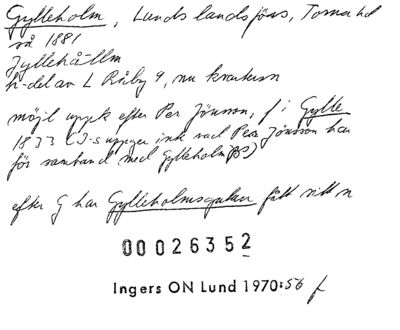 Gylleholm, Lunds landsförs, Torna hd
rå 1881
Jyllehållm
h-del av L Råby 4, nu kvartersn
möjl uppk efter Per Jönsson, f i Gylle
1833 (I-s uppger ink vad Per Jönsson har
för samband med Gylleholm)
efter G har Gylleholmsgatan fått sitt n
00026352
Ingers ON Lund 1970:56 f